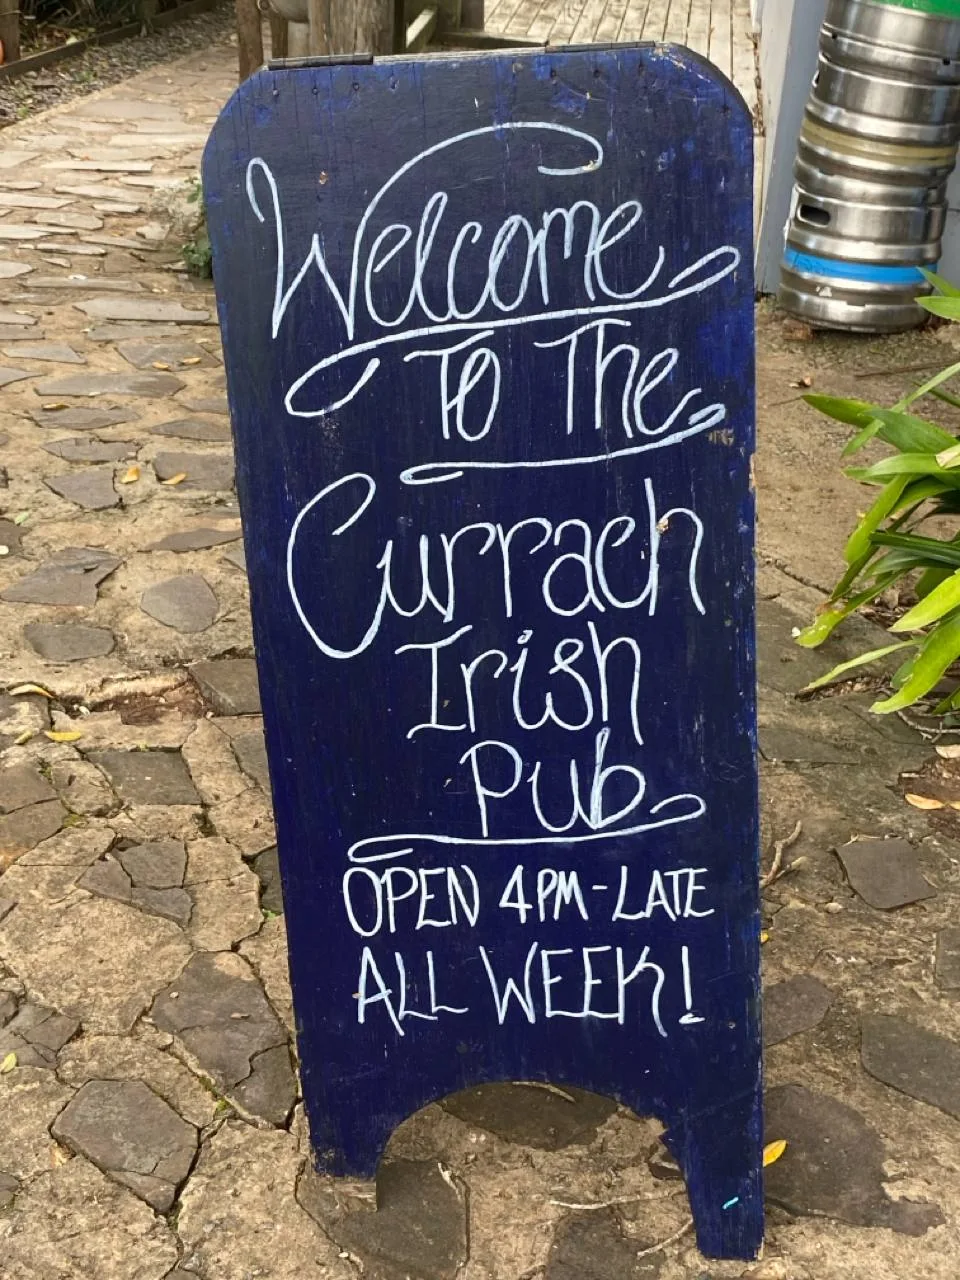 Welcome
To The
Currach
Irish
Pub
OPEN 4PM-LATE
ALL WEEK!